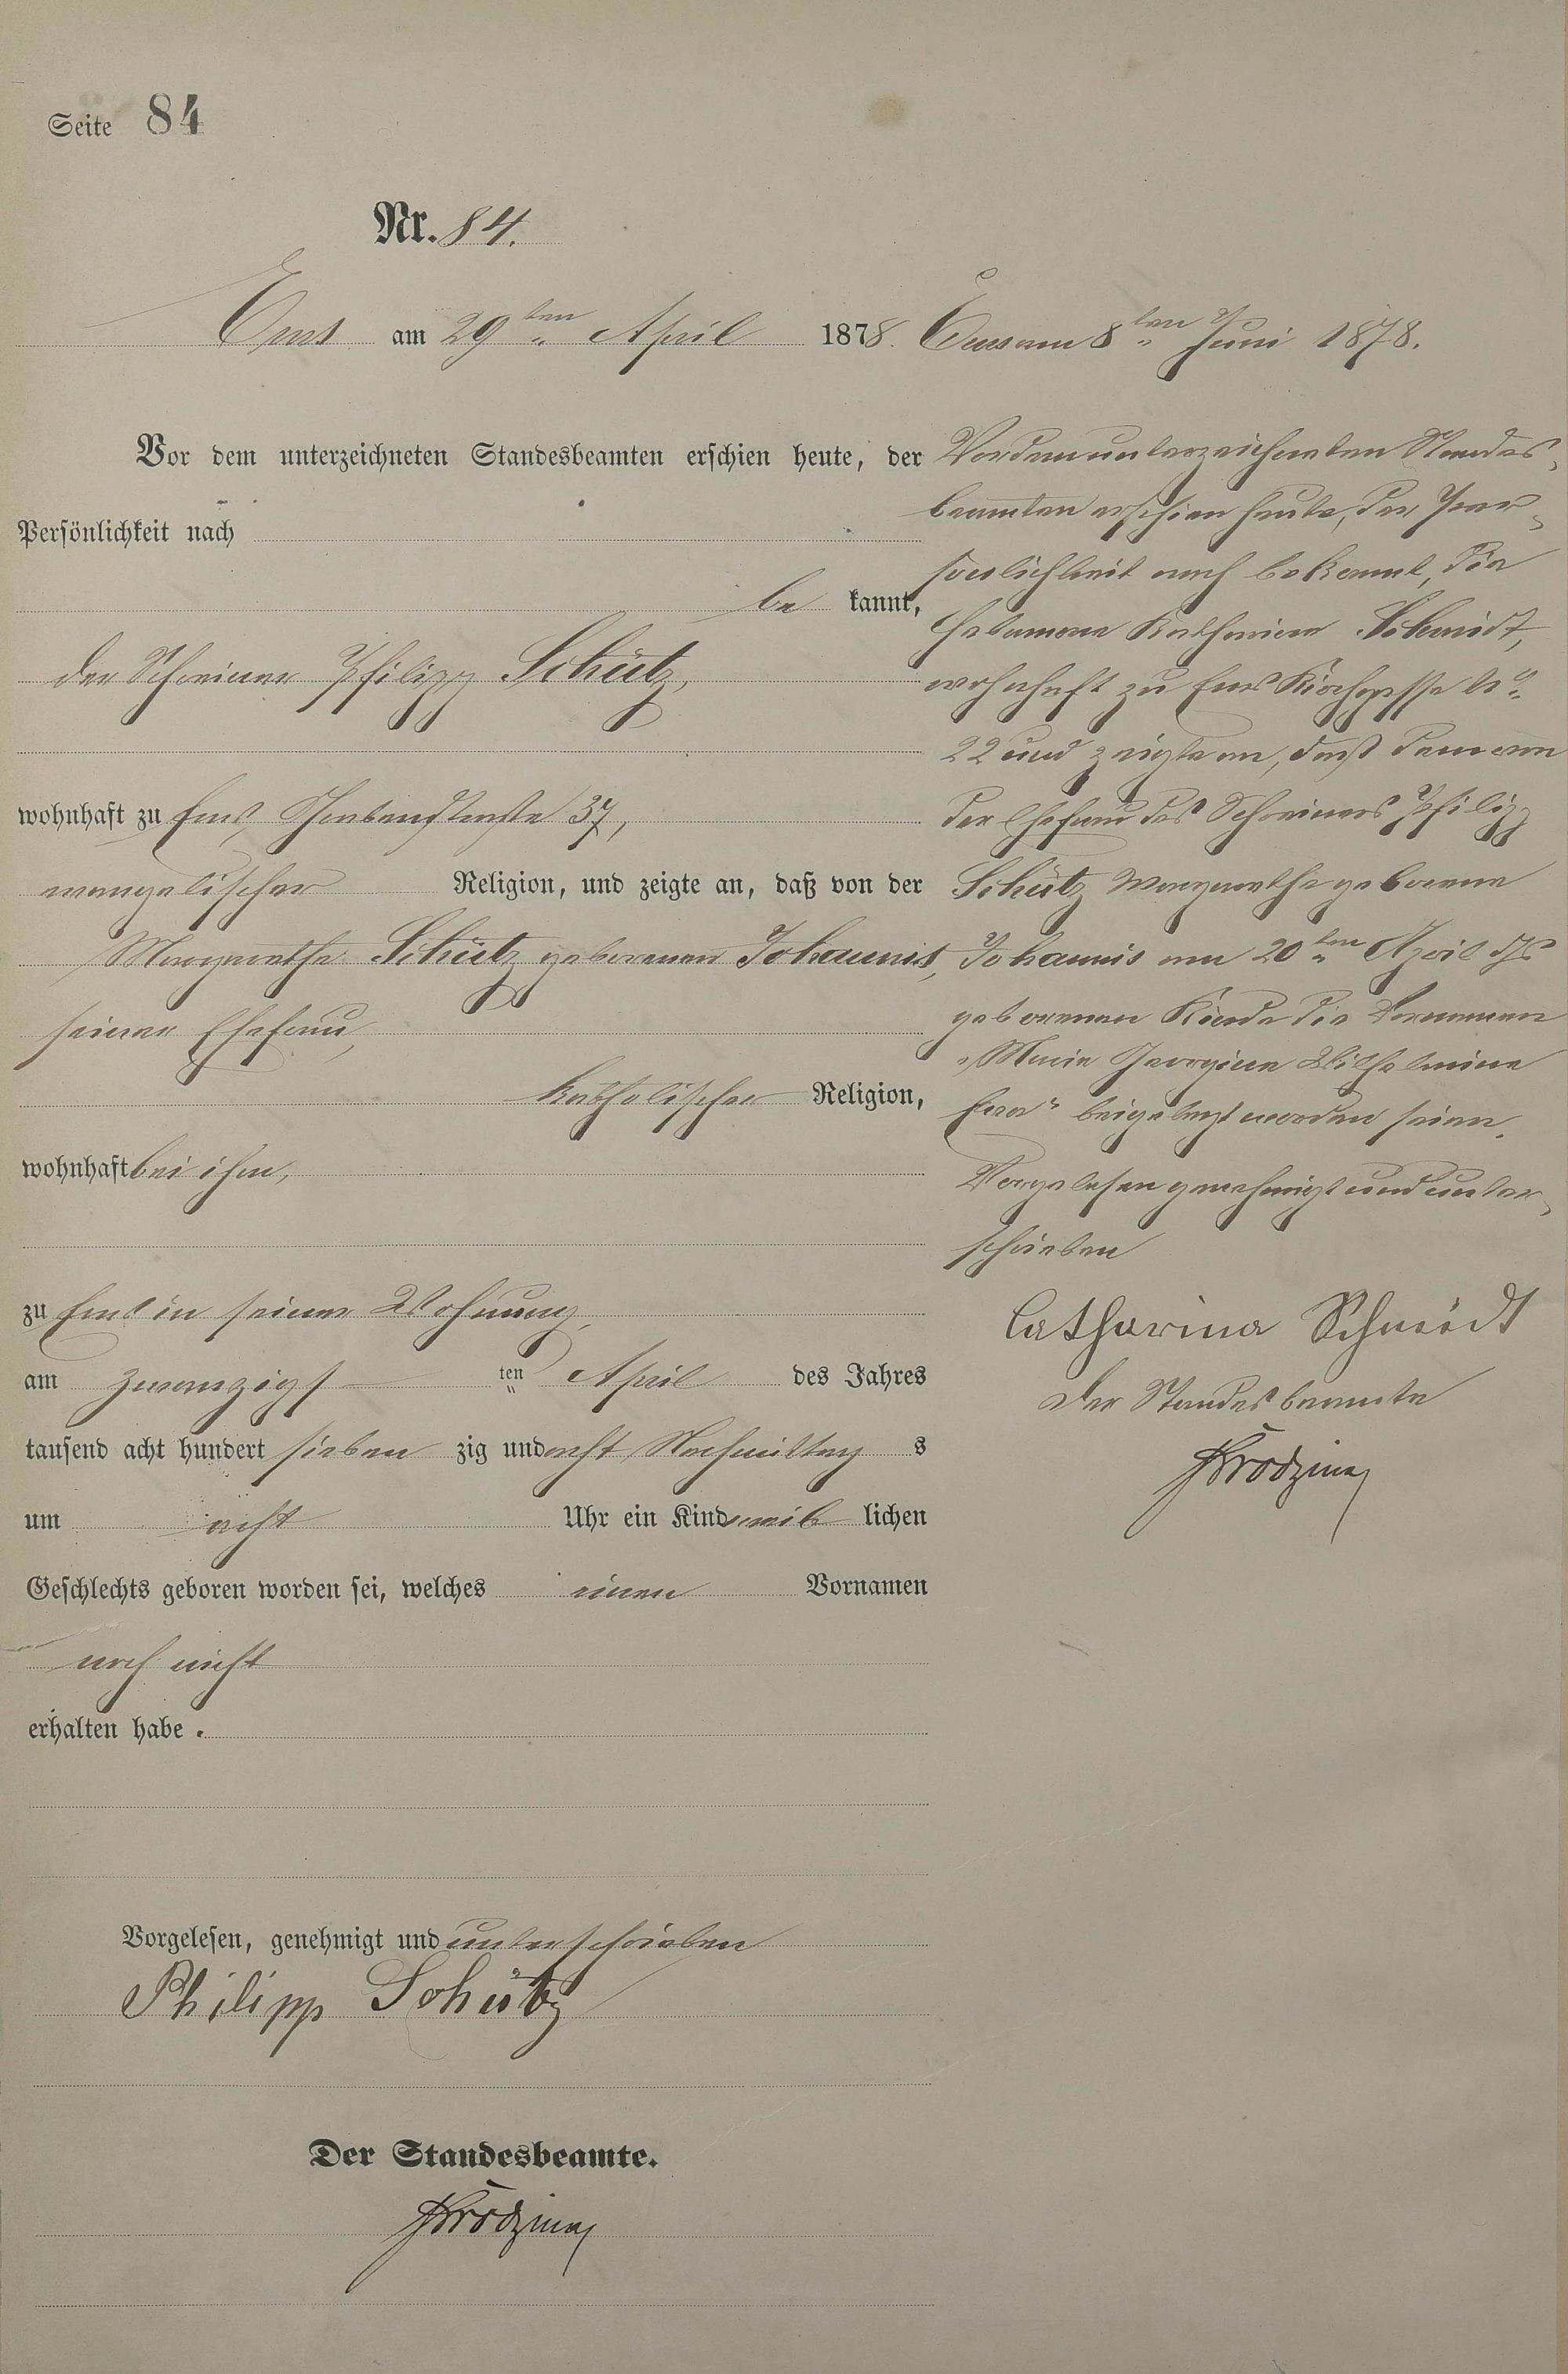 Seite 84
Nr. 84.
Ems am 29ten April 1878.
Vor dem unterzeichneten Standesbeamten erschien heute, der
Persönlichkeit nach
be kannt,
der Schreiner Philipp Schütz,
wohnhaft zu Ems, 37,
evangelischer Religion, und zeigte an, daß von der
Margarethe Schütz geborenen Johannis,
seiner Ehefrau,
katholischer Religion,
wohnhaft bei ihm,
zu Ems in seiner Wohnung,
am zwanzigs ten April des Jahres
tausend acht hundert sieben zig und acht Nachmittag s
um acht Uhr ein Kind weib lichen
Geschlechts geboren worden sei, welches einen Vornamen
noch nicht
erhalten habe.
Vorgelesen, genehmigt und unterschrieben
Philipp Schütz
Der Standesbeamte.
Ems am 8ten Juni 1878.
Vor dem unterzeichneten Standes-
beamten erschien heute, der Per-
sönlichkeit nach bekannt, die
Hebamme Katharina Schmidt,
wohnhaft zu Ems Kirchgasse No
22 und zeigte an, daß dem von
der Ehefrau des Schreiners Philipp
Schütz Margarethe geborene
Johannis am 20ten April djs
geborenen Kinde die Vornamen
"Marie Georgine Wilhelmine
" beigelegt worden seien.
Vorgelesen genehmigt und unter-
schrieben
Catharina Schmidt
Der Standesbeamte